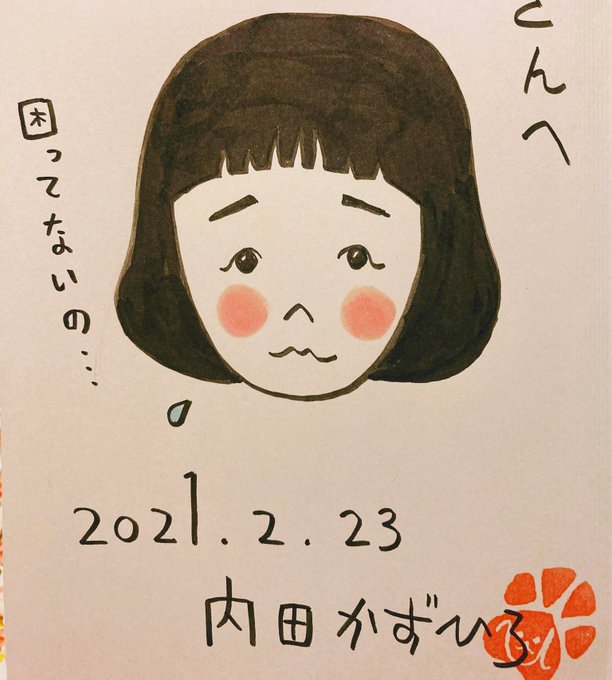 んへ
困ってないの…
2021.2.23
内田かずひろ